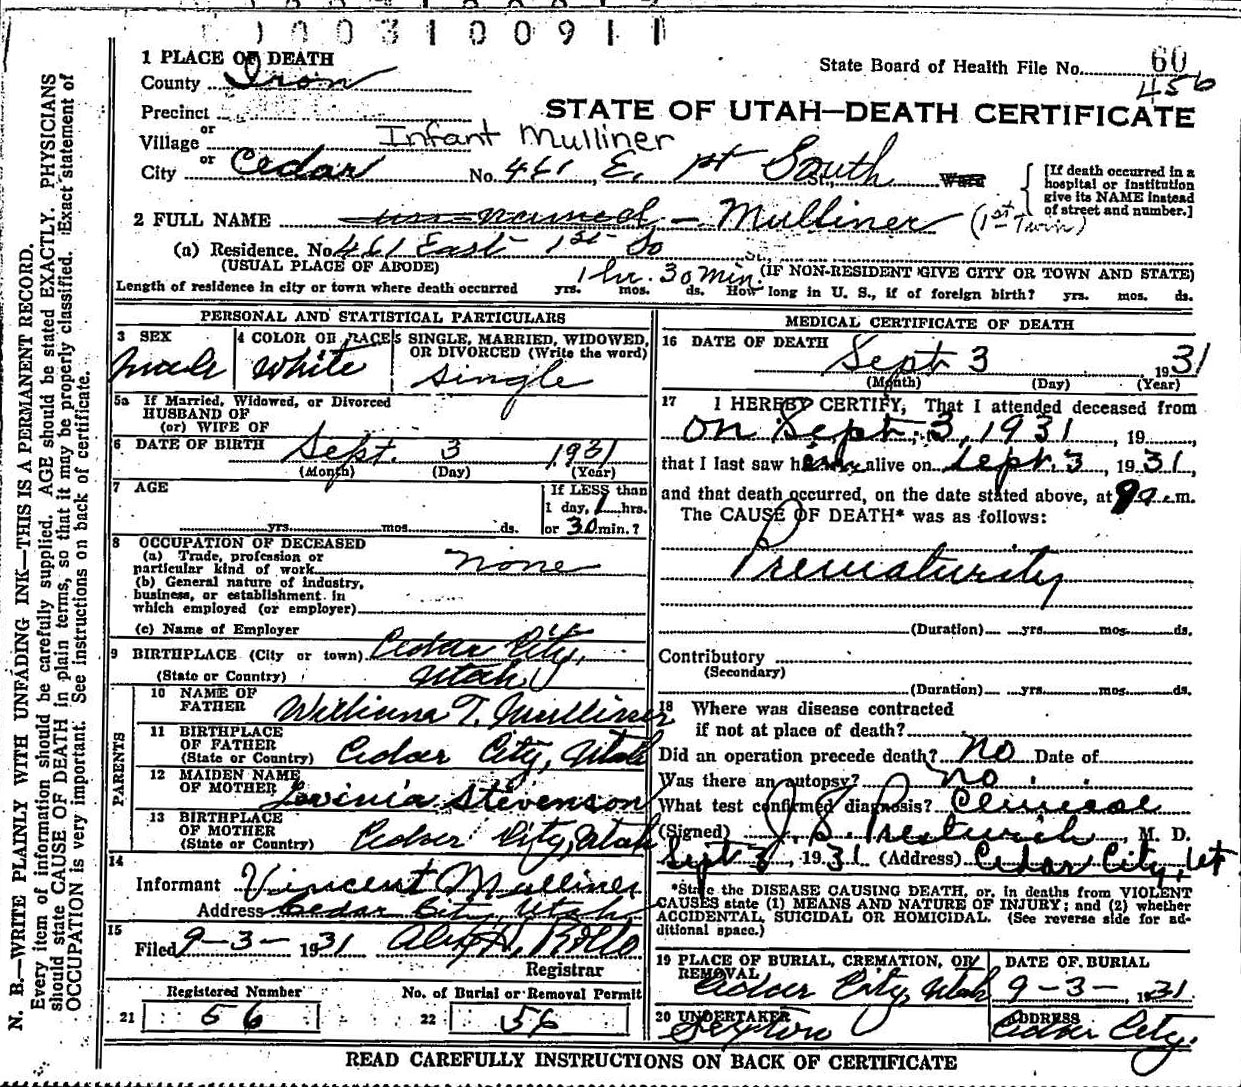 003100911
1 PLACE OF DEATH
County Iron
State Board of Health File No. 60
456
Precinct
STATE OF UTAH—DEATH CERTIFICATE
or
Village
Infant Mulliner
or
City Cedar No. 461 E. 1st South St., Ward
[If death occurred in a hospital or institution give its NAME instead of street and number.]
2 FULL NAME un-named - Mulliner (1st Twin)
(a) Residence. No. 461 East 1st So St.
(USUAL PLACE OF ABODE) (IF NON-RESIDENT GIVE CITY OR TOWN AND STATE)
1 hr. 30 min.
Length of residence in city or town where death occurred yrs. mos. ds. How long in U. S., if of foreign birth? yrs. mos. ds.
PERSONAL AND STATISTICAL PARTICULARS
3 SEX
male
4 COLOR OR RACE
White
5 SINGLE, MARRIED, WIDOWED, OR DIVORCED (Write the word)
single
5a If Married, Widowed, or Divorced
HUSBAND OF
(or) WIFE OF
6 DATE OF BIRTH Sept. 3 1931
(Month) (Day) (Year)
7 AGE
yrs. mos. ds.
If LESS than
1 day, 1 hrs.
or 30 min.?
8 OCCUPATION OF DECEASED
(a) Trade, profession or
particular kind of work none
(b) General nature of industry,
business, or establishment in
which employed (or employer)
(c) Name of Employer
9 BIRTHPLACE (City or town) Cedar City,
(State or Country) Utah
PARENTS
10 NAME OF
FATHER William T. Mulliner
11 BIRTHPLACE
OF FATHER
(State or Country) Cedar City, Utah
12 MAIDEN NAME
OF MOTHER Lovinia Stevenson
13 BIRTHPLACE
OF MOTHER
(State or Country) Cedar City, Utah
14
Informant Vincent Mulliner
Address Cedar City, Utah
15
Filed 9-3- 1931 Alex H. Rollo
Registrar
Registered Number
21 56
No. of Burial or Removal Permit
22 56
MEDICAL CERTIFICATE OF DEATH
16 DATE OF DEATH
Sept 3 1931
(Month) (Day) (Year)
17 I HEREBY CERTIFY, That I attended deceased from
on Sept. 3, 1931, 19
that I last saw h alive on Sept. 3, 1931,
and that death occurred, on the date stated above, at 9 a.m.
The CAUSE OF DEATH* was as follows:
Prematurity
(Duration) yrs. mos. ds.
Contributory
(Secondary)
(Duration) yrs. mos. ds.
18 Where was disease contracted
if not at place of death?
Did an operation precede death? no Date of
Was there an autopsy? no
What test confirmed diagnosis? Clinical
(Signed) J. S. Prestwich M. D.
Sept 3, 1931 (Address) Cedar City, Ut
*State the DISEASE CAUSING DEATH, or, in deaths from VIOLENT
CAUSES state (1) MEANS AND NATURE OF INJURY; and (2) whether
ACCIDENTAL, SUICIDAL OR HOMICIDAL. (See reverse side for ad-
ditional space.)
19 PLACE OF BURIAL, CREMATION, OR
REMOVAL
Cedar City, Utah
DATE OF BURIAL
9-3- 1931
20 UNDERTAKER
Sexton
ADDRESS
Cedar City.
READ CAREFULLY INSTRUCTIONS ON BACK OF CERTIFICATE
N. B.—WRITE PLAINLY WITH UNFADING INK—THIS IS A PERMANENT RECORD.
Every item of information should be carefully supplied. AGE should be stated EXACTLY. PHYSICIANS
should state CAUSE OF DEATH in plain terms, so that it may be properly classified. Exact statement of
OCCUPATION is very important. See instructions on back of certificate.